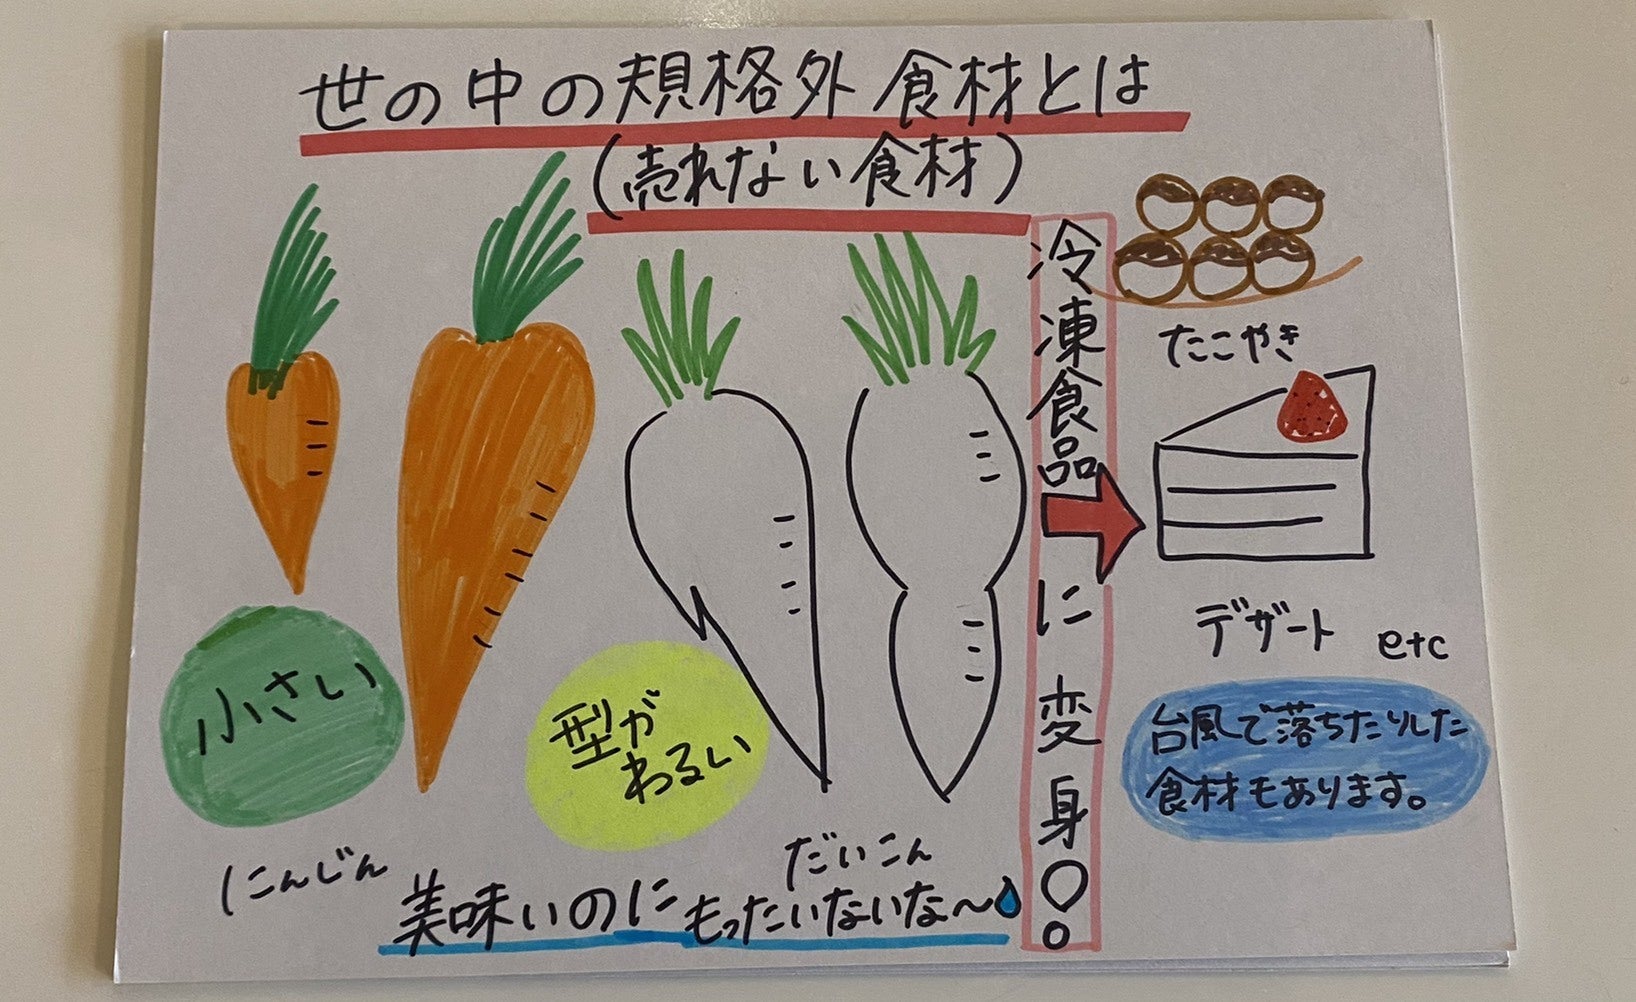 世の中の規格外食材とは
(売れない食材)
冷凍食品に変身!
たこやき
デザート
etc
小さい
型が
わるい
台風で落ちたりした
食材もあります。
にんじん
だいこん
美味いのにもったいないな〜